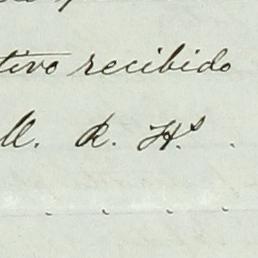 tivo recibido
M. R. H.s .
. . . .